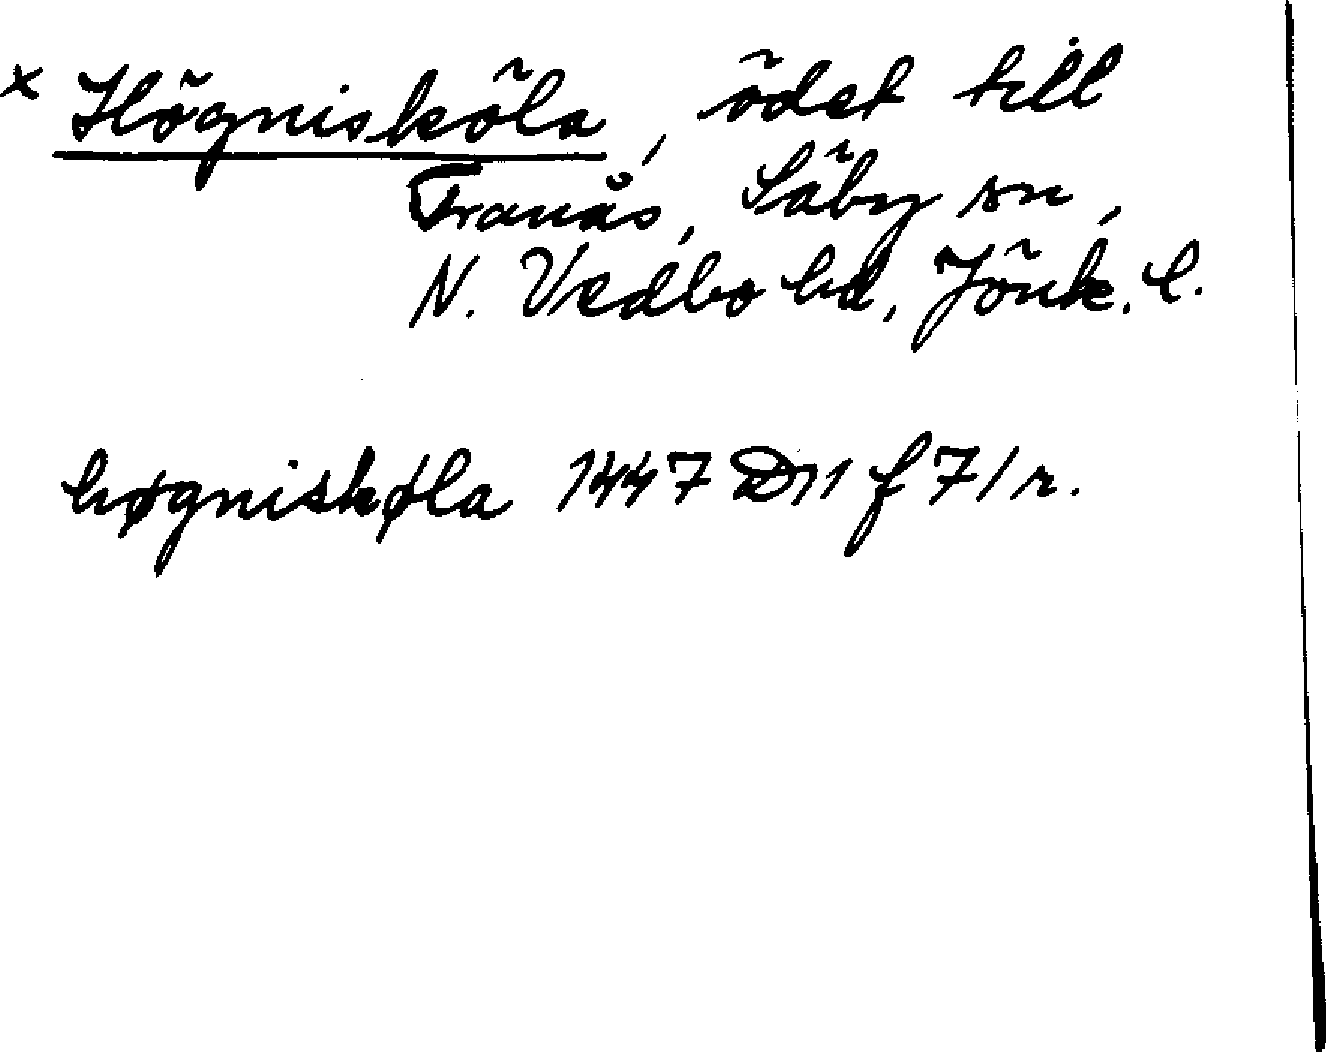 x Högnisköla, ödet till
Tranås, Säby sn,
N. Vedbo hd, Jönk. l.
høgniskøla 1447 D11 f 7/r.